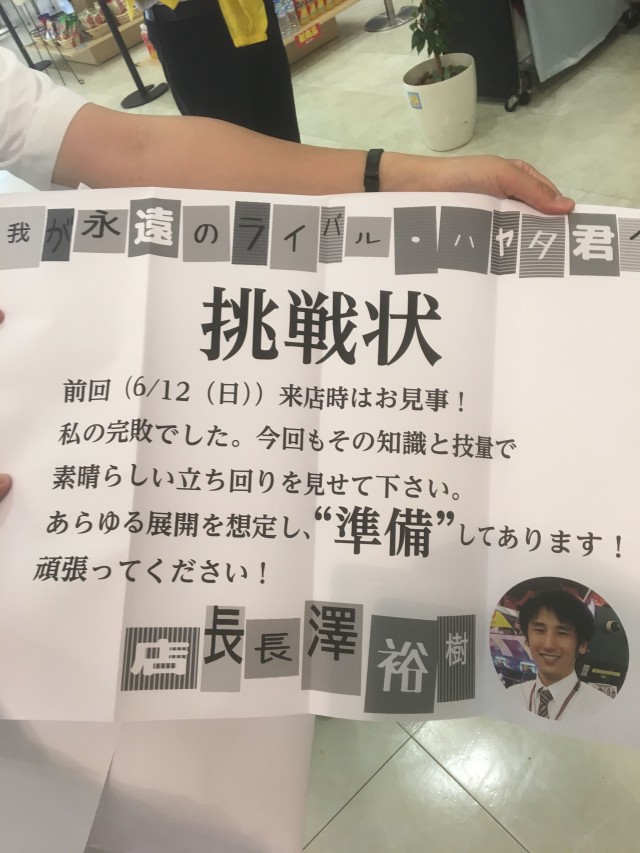 我が永遠のライバル・ハヤタ君へ
挑戦状
前回（6/12（日））来店時はお見事！
私の完敗でした。今回もその知識と技量で
素晴らしい立ち回りを見せて下さい。
あらゆる展開を想定し、“準備”してあります！
頑張ってください！
店長長澤裕樹